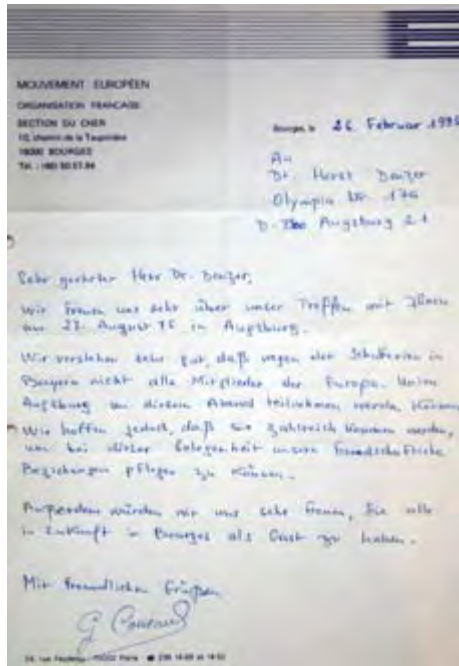 MOUVEMENT EUROPÉEN
ORGANISATION FRANCAISE
SECTION DU CHER
10, chemin de la Taupinière
18000 BOURGES
Bourges, le 26. Februar
An
Dr. Horst Denzer
Olympia Str.
Augsburg 21
Sehr geehrter Herr Dr. Denzer,
Wir freuen uns sehr über unser Treffen mit Ihnen
am 23. August 95 in Augsburg.
Wir verstehen sehr gut, daß wegen der Schulferien in
Bayern nicht alle Mitglieder der Europa Union
Augsburg an diesem Abend teilnehmen werden können
Wir hoffen jedoch, daß sie zahlreich kommen werden,
um bei dieser Gelegenheit unsere freundschaftliche
Beziehungen pflegen zu können.
Außerdem würden wir uns sehr freuen, Sie alle
in Zukunft in Bourges als Gast zu haben.
Mit freundlichen Grüßen